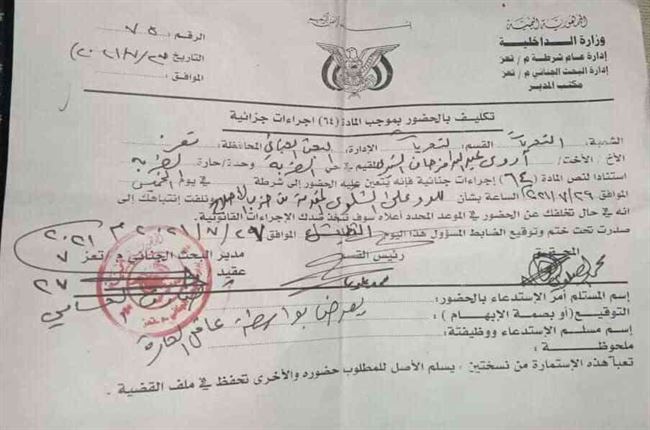 الجمهورية اليمنية
وزارة الداخلية
إدارة عام شرطة م / تعز
إدارة البحث الجنائي م / تعز
مكتب المدير
الرقم: ٧٥
التاريخ ٢٠٢١/٧/
الموافق:
تكليف بالحضور بموجب المادة (٦٤) اجراءات جزائية
الشعبة: التحريات القسم: التحريات الإدارة: البحث الجنائي المحافظة: تعز
الأخ/ الأخت: أروى المقيم في حي الضربة وحدة/حارة الضربة
استنادا لنص المادة (٦٤) إجراءات جنائية فإنه يتعين عليه الحضور إلى شرطة في يوم الخميس
الموافق ٢٠٢١/٧/٢٩ الساعة بشأن للرد على الشكوى من حزب الإصلاح ونلفت إنتباهك إلى
انه في حال تخلفك عن الحضور في الموعد المحدد أعلاه سوف تتخذ ضدك الإجراءات القانونية.
صدرت تحت ختم وتوقيع الضابط المسؤول هذا اليوم الموافق ٢٠٢١/٧/
المحقق رئيس القسم مدير البحث الجنائي م/ تعز
عقيد
إسم المستلم أمر الإستدعاء بالحضور:
التوقيع(أو بصمة الإبهام): يعرض بواسطة عاقل الحارة
إسم مسلم الإستدعاء ووظيفتة:
ملحوظة:
تعبأ هذه الإستمارة من نسختين، يسلم الأصل للمطلوب حضوره والأخرى تحفظ في ملف القضية.